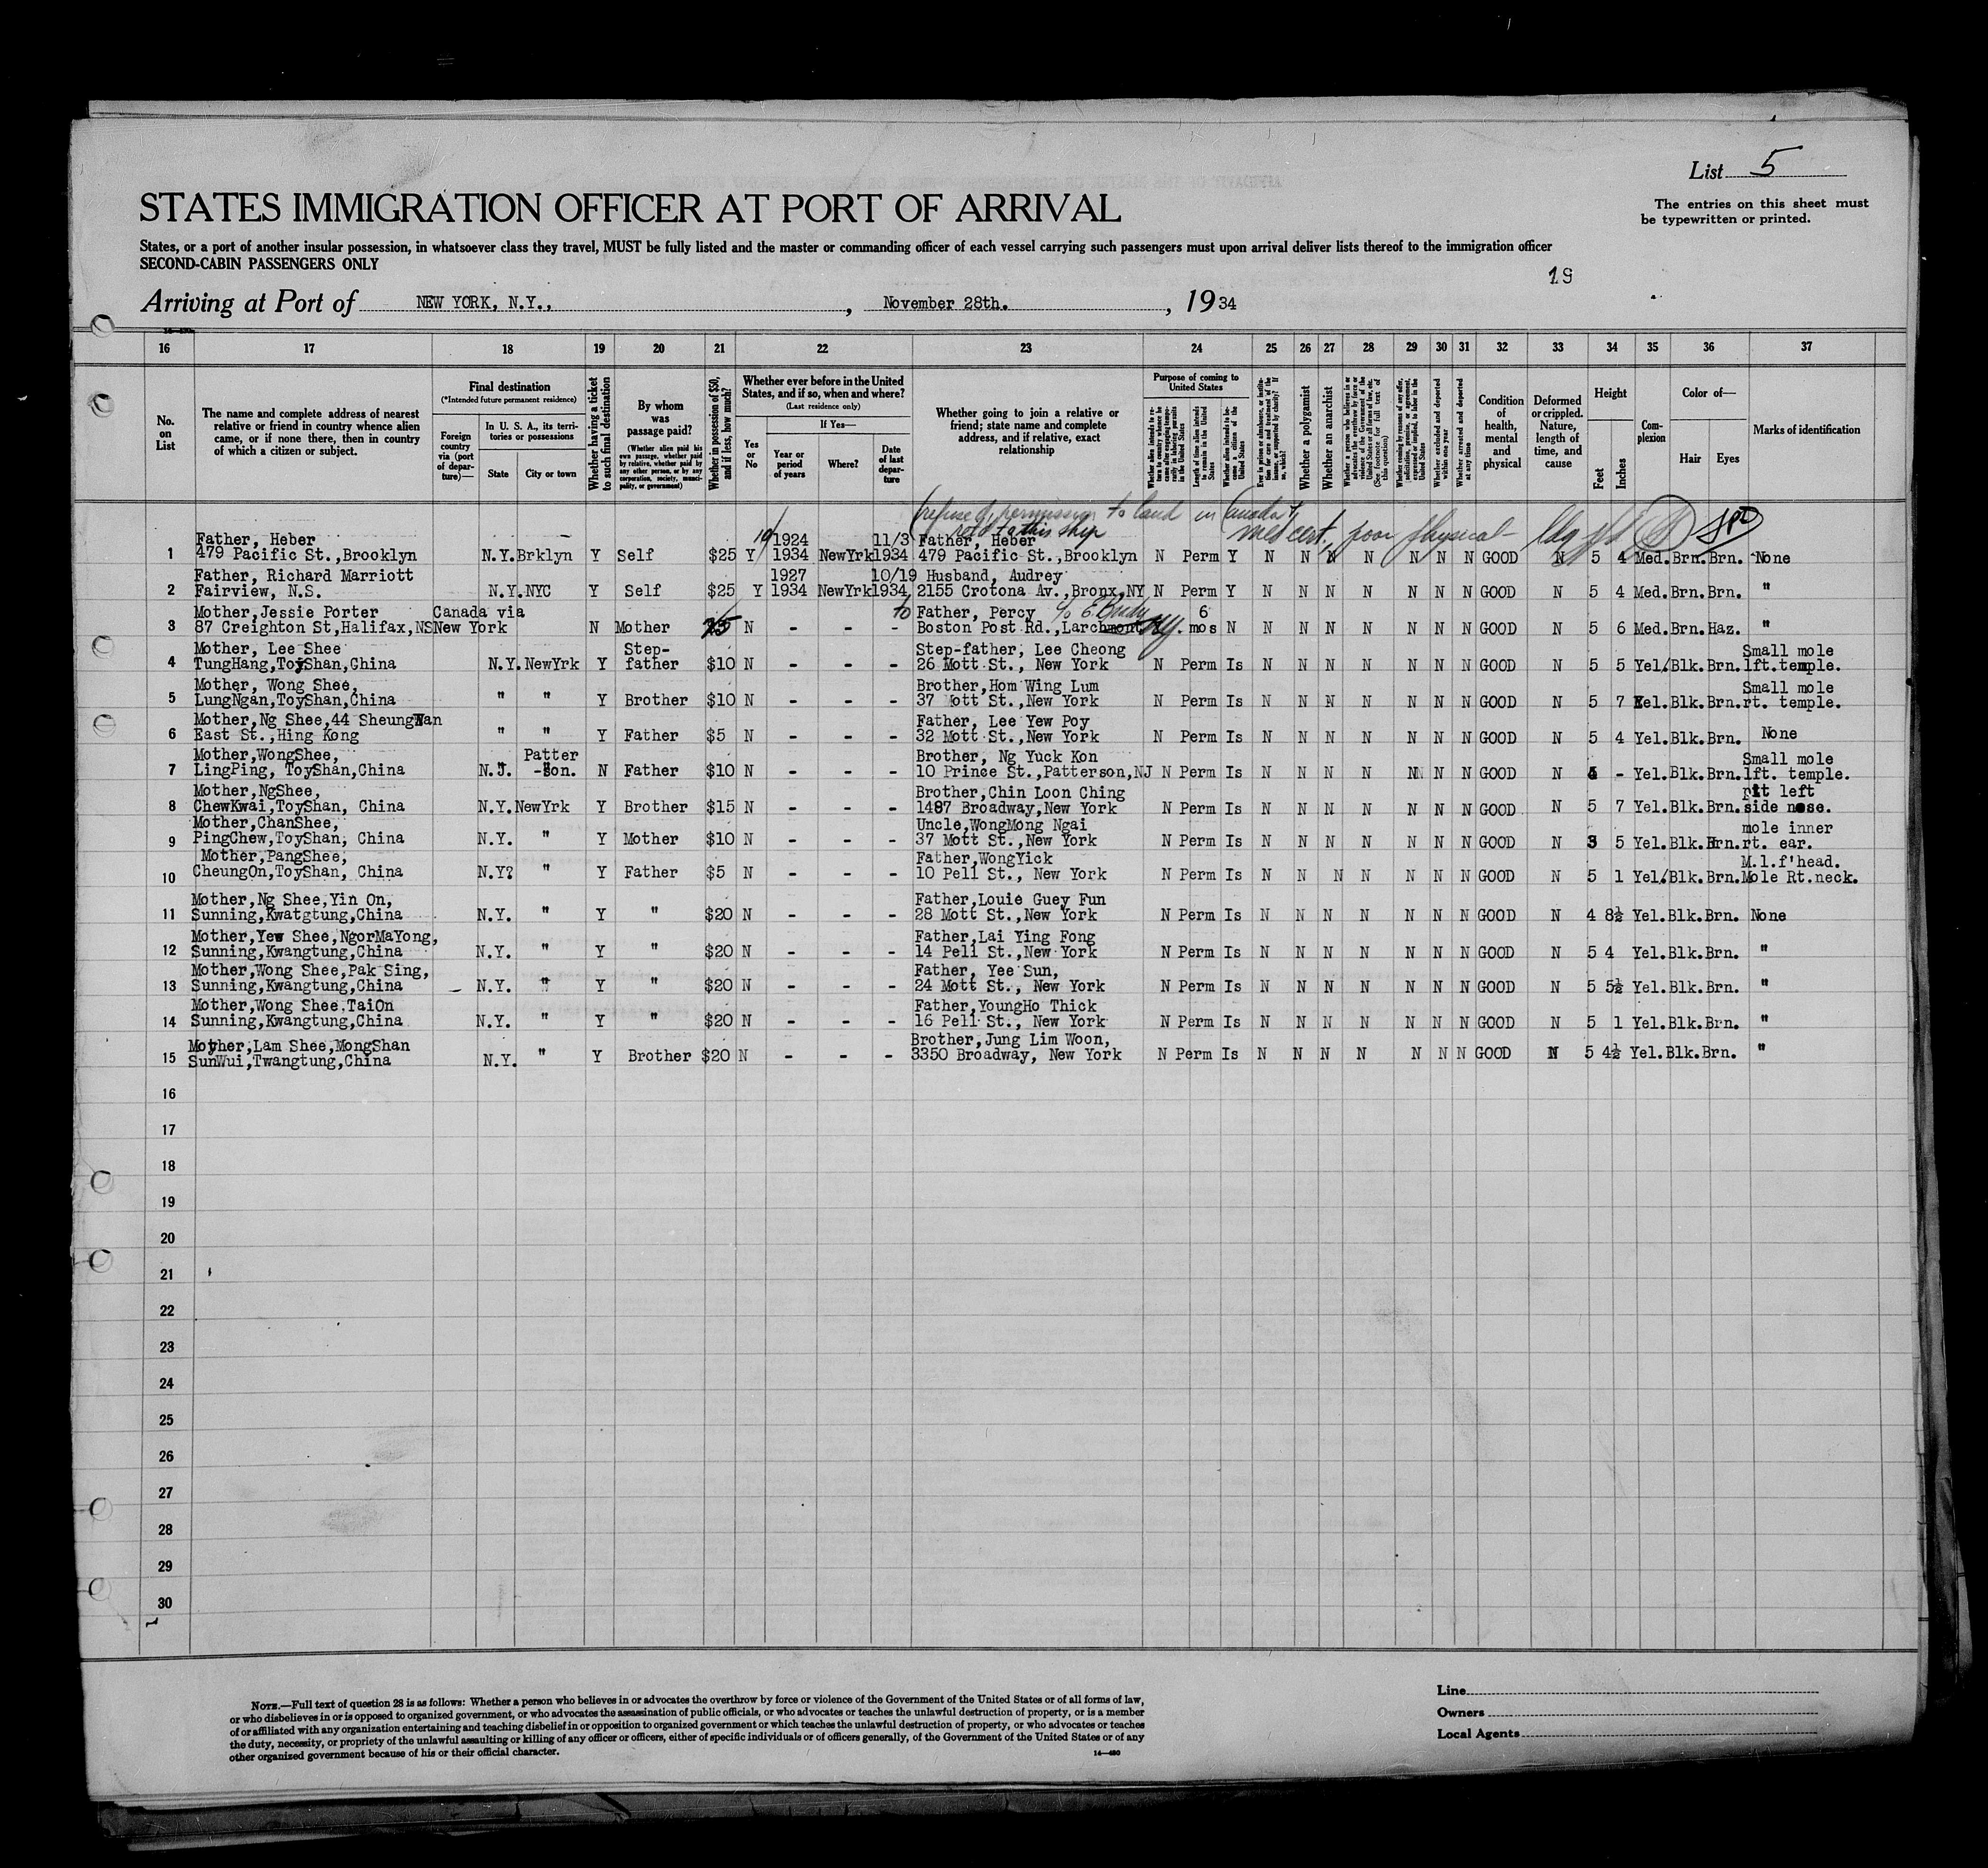 List 5
STATES IMMIGRATION OFFICER AT PORT OF ARRIVAL
The entries on this sheet must
be typewritten or printed.
States, or a port of another insular possession, in whatsoever class they travel, MUST be fully listed and the master or commanding officer of each vessel carrying such passengers must upon arrival deliver lists thereof to the immigration officer
SECOND-CABIN PASSENGERS ONLY
19
Arriving at Port of NEW YORK, N.Y., , November 28th. , 1934
16 17 18 19 20 21 22 23 24 25 26 27 28 29 30 31 32 33 34 35 36 37
No. on List
The name and complete address of nearest relative or friend in country whence alien came, or if none there, then in country of which a citizen or subject.
Final destination
(*Intended future permanent residence)
Foreign country via (port of departure)—
In U. S. A., its territories or possessions
State City or town
Whether having a ticket to such final destination
By whom was passage paid?
(Whether alien paid his own passage, whether paid by relative, whether paid by any other person, or by any corporation, society, municipality, or government)
Whether in possession of $50, and if less, how much?
Whether ever before in the United States, and if so, when and where?
(Last residence only)
Yes or No
If Yes—
Year or period of years Where? Date of last departure
Whether going to join a relative or friend; state name and complete address, and if relative, exact relationship
Purpose of coming to United States
Length of time alien intends to remain in the United States
Whether alien intends to become a citizen of the United States
Whether a polygamist
Whether an anarchist
Whether excluded and deported within one year
Whether arrested and deported at any time
Condition of health, mental and physical
Deformed or crippled. Nature, length of time, and cause
Height
Feet Inches
Complexion
Color of—
Hair Eyes
Marks of identification
refused permission to land in Canada &
retd to this ship
med cert, poor physical
Father, Heber 1924 11/3 Father, Heber
1 479 Pacific St.,Brooklyn N.Y.Brklyn Y Self $25 Y 1934 NewYrk 1934 479 Pacific St.,Brooklyn N Perm Y N N N N N N N GOOD N 5 4 Med.Brn.Brn. None
Father, Richard Marriott 1927 10/19 Husband, Audrey
2 Fairview, N.S. N.Y.NYC Y Self $25 Y 1934 NewYrk 1934 2155 Crotona Av.,Bronx,NY N Perm Y N N N N N N N GOOD N 5 4 Med.Brn.Brn. "
Mother,Jessie Porter Canada via Father, Percy 6
3 87 Creighton St,Halifax,NS New York N Mother N - - - Boston Post Rd.,Larchmont mos N N N N N N N N GOOD N 5 6 Med.Brn.Haz. "
Mother, Lee Shee Step- Step-father, Lee Cheong Small mole
4 TungHang,ToyShan,China N.Y.NewYrk Y father $10 N - - - 26 Mott St., New York N Perm Is N N N N N N N GOOD N 5 5 Yel/Blk.Brn.lft.temple.
Mother, Wong Shee, Brother,Hom Wing Lum Small mole
5 LungNgan,ToyShan,China " " Y Brother $10 N - - - 37 Mott St.,New York N Perm Is N N N N N N N GOOD N 5 7 Yel.Blk.Brn.rt. temple.
Mother,Ng Shee,44 SheungWan Father, Lee Yew Poy
6 East St.,Hing Kong " " Y Father $5 N - - - 32 Mott St.,New York N Perm Is N N N N N N N GOOD N 5 4 Yel.Blk.Brn. None
Mother,WongShee, Patter Brother, Ng Yuck Kon Small mole
7 LingPing, ToyShan,China N.J. -son. N Father $10 N - - - 10 Prince St.,Patterson,NJ N Perm Is N N N N N N N GOOD N - Yel.Blk.Brn.lft. temple.
Mother,NgShee, Brother,Chin Loon Ching pit left
8 ChewKwai,ToyShan, China N.Y.NewYrk Y Brother $15 N - - - 1487 Broadway,New York N Perm Is N N N N N N N GOOD N 5 7 Yel.Blk.Brn.side nose.
Mother,ChanShee, Uncle,WongMong Ngai mole inner
9 PingChew,ToyShan, China N.Y. " Y Mother $10 N - - - 37 Mott St.,New York N Perm Is N N N N N N N GOOD N 5 Yel.Blk.Brn.rt. ear.
Mother,PangShee, Father,WongYick M.l.f'head.
10 CheungOn,ToyShan, China N.Y? " Y Father $5 N - - - 10 Pell St., New York N Perm Is N N N N N N N GOOD N 5 1 Yel/Blk.Brn.Mole Rt.neck.
Mother,Ng Shee,Yin On, Father,Louie Guey Fun
11 Sunning,Kwatgtung,China N.Y. " Y " $20 N - - - 28 Mott St.,New York N Perm Is N N N N N N N GOOD N 4 8½ Yel.Blk.Brn. None
Mother,Yew Shee,NgorMaYong, Father,Lai Ying Fong
12 Sunning,Kwangtung,China N.Y. " Y " $20 N - - - 14 Pell St.,New York N Perm Is N N N N N N N GOOD N 5 4 Yel.Blk.Brn. "
Mother,Wong Shee,Pak Sing, Father, Yee Sun,
13 Sunning,Kwangtung,China N.Y. " Y " $20 N - - - 24 Mott St., New York N Perm Is N N N N N N N GOOD N 5 5½ Yel.Blk.Brn. "
Mother,Wong Shee,TaiOn Father,YoungHo Thick
14 Sunning,Kwangtung,China N.Y. " Y " $20 N - - - 16 Pell St., New York N Perm Is N N N N N N N GOOD N 5 1 Yel.Blk.Brn. "
Mother,Lam Shee,MongShan Brother,Jung Lim Woon,
15 SunWui,Twangtung,China N.Y. " Y Brother $20 N - - - 3350 Broadway, New York N Perm Is N N N N N N N GOOD N 5 4½ Yel.Blk.Brn. "
16
17
18
19
20
21
22
23
24
25
26
27
28
29
30
NOTE.—Full text of question 28 is as follows: Whether a person who believes in or advocates the overthrow by force or violence of the Government of the United States or of all forms of law,
or who disbelieves in or is opposed to organized government, or who advocates the assassination of public officials, or who advocates or teaches the unlawful destruction of property, or is a member
of or affiliated with any organization entertaining and teaching disbelief in or opposition to organized government or which teaches the unlawful destruction of property, or who advocates or teaches
the duty, necessity, or propriety of the unlawful assaulting or killing of any officer or officers, either of specific individuals or of officers generally, of the Government of the United States or of any
other organized government because of his or their official character.
14—480
Line
Owners
Local Agents